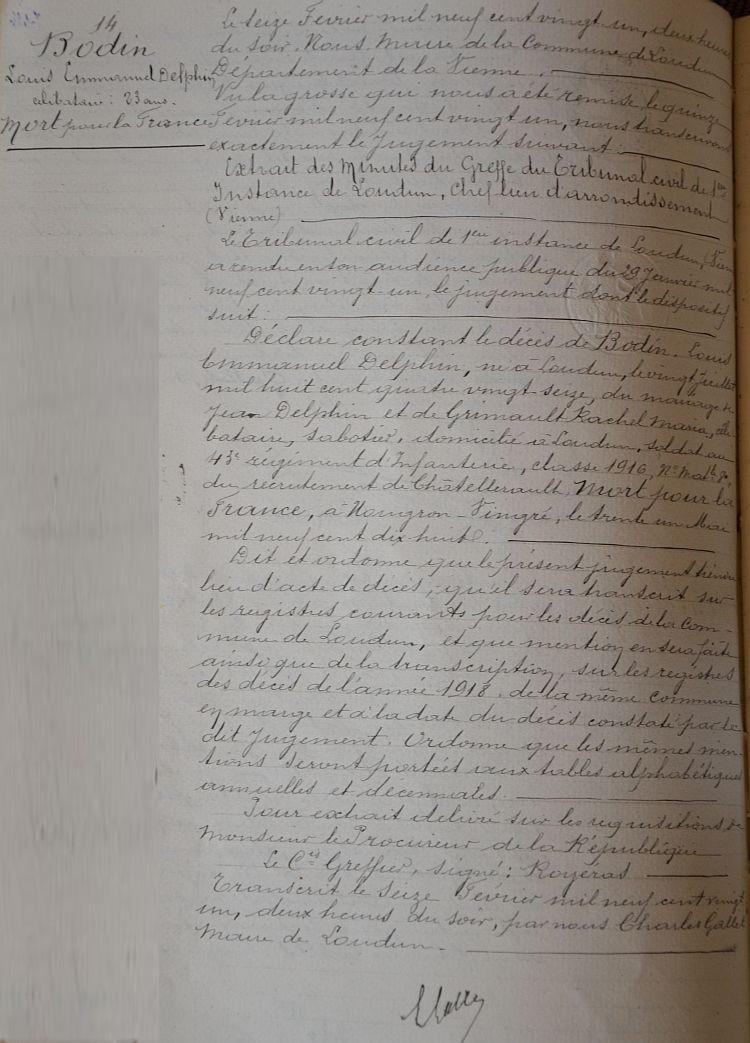 14
Bodin
Louis Emmanuel Delphin
célibataire : 23 ans.
Mort pour la France
Le Seize Février mil neuf cent vingt un, deux heures
du soir. Nous, Maire de la Commune de Loudun
Département de la Vienne.
Vu la grosse qui nous a été remise, le quinze
Février mil neuf cent vingt un, nous transcrivons
exactement le Jugement suivant :
Extrait des Minutes du Greffe du Tribunal civil de 1ère
Instance de Loudun, Chef lieu d'arrondissement
(Vienne)
Le Tribunal civil de 1ère instance de Loudun, (Vienne
a rendu en son audience publique du 29 Janvier mil
neuf cent vingt-un, le jugement dont le dispositif
suit :
Déclare constant le décès de Bodin. Louis
Emmanuel Delphin, né à Loudun, le vingt Juillet
mil huit cent quatre vingt-seize, du mariage de
Jean Delphin et de Grimault Rachel Maria, céli-
bataire, sabotier, domicilié à Loudun, soldat au
43e régiment d'Infanterie, classe 1916, No Matle
du recrutement de Châtellerault, Mort pour la
France, à Nouvron-Vingré, le trente un Mai
mil neuf cent dix huit.
Dit et ordonne que le présent jugement tiendra
lieu d'acte de décès, qu'il sera transcrit sur
les registres courants pour les décès de la Com-
mune de Loudun, et que mention en sera faite
ainsi que de la transcription, sur les registres
des décès de l'année 1918, de la même commune
en marge et à la date du décès constaté par le
dit Jugement. Ordonne que les mêmes men-
tions seront portées aux tables alphabétiques
annuelles et décennales.
Pour extrait délivré sur les réquisitions de
Monsieur le Procureur de la République
Le Cis Greffier, signé : Royéras
Transcrit le Seize Février mil neuf cent vingt
un, deux heures du soir, par nous Charles Gallet
Maire de Loudun.